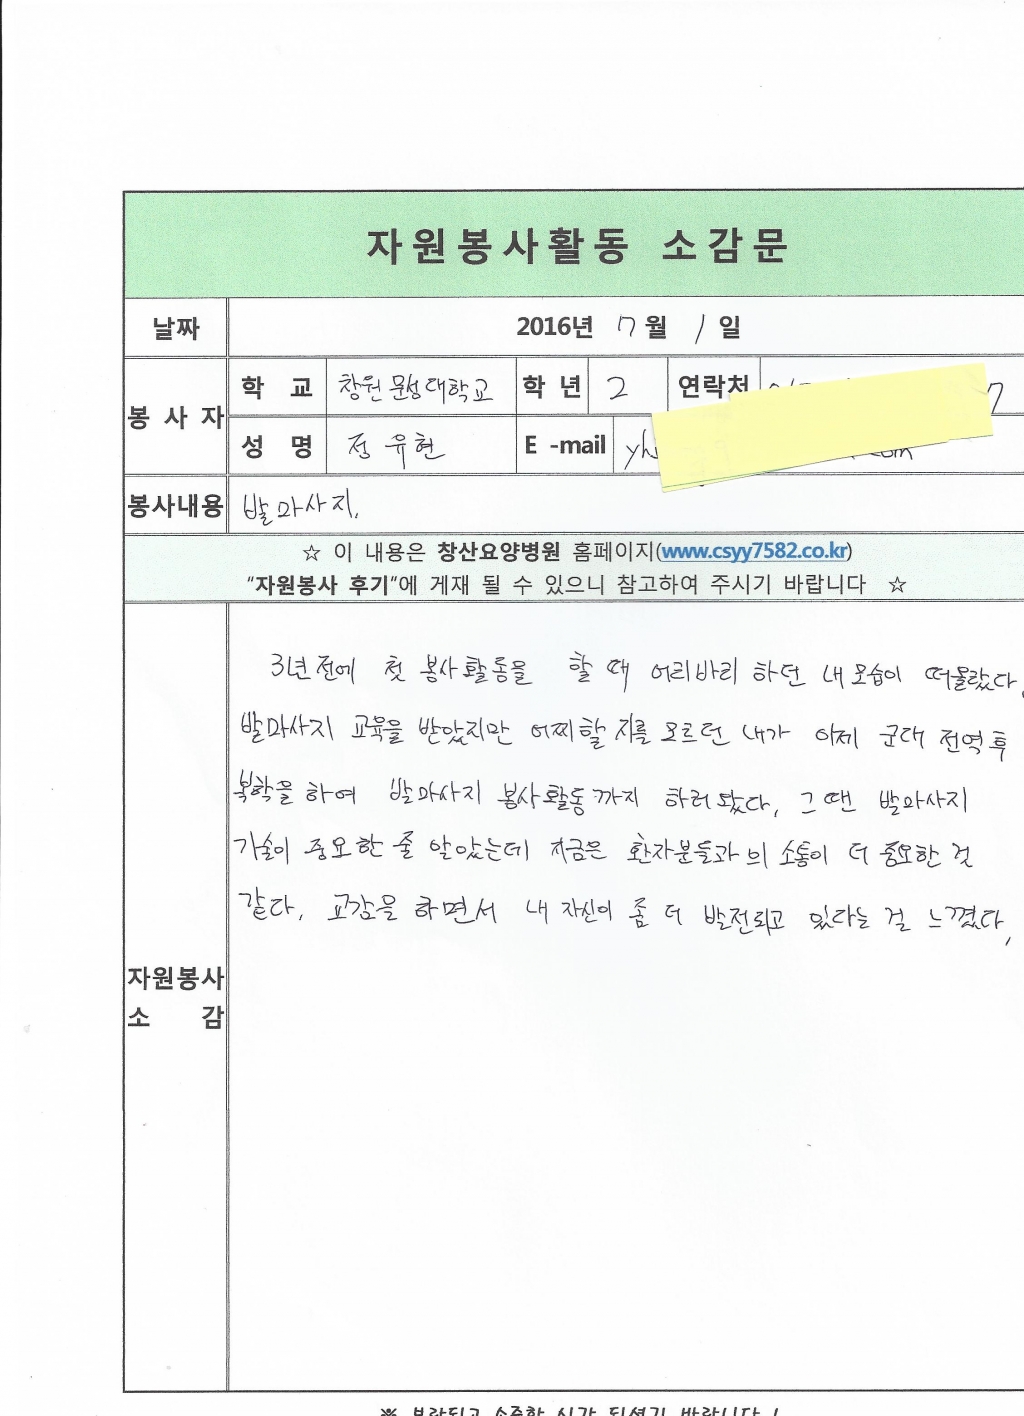 자원봉사활동 소감문
날짜 2016년 7월 1일
봉사자 학 교 창원문성대학교 학년 2 연락처
성 명 정유현 E -mail
봉사내용 발마사지.
☆ 이 내용은 창산요양병원 홈페이지(www.csyy7582.co.kr)
"자원봉사 후기"에 게재 될 수 있으니 참고하여 주시기 바랍니다 ☆
자원봉사
소 감
3년전에 첫 봉사활동을 할 때 어리바리 하던 내모습이 떠올랐다.
발마사지 교육을 받았지만 어찌할 지를 모르던 내가 이제 군대 전역후
복학을 하여 발마사지 봉사활동까지 하러왔다. 그땐 발마사지
기술이 중요한 줄 알았는데 지금은 환자분들과의 소통이 더 중요한 것
같다. 교감을 하면서 내 자신이 좀 더 발전되고 있다는 걸 느꼈다.